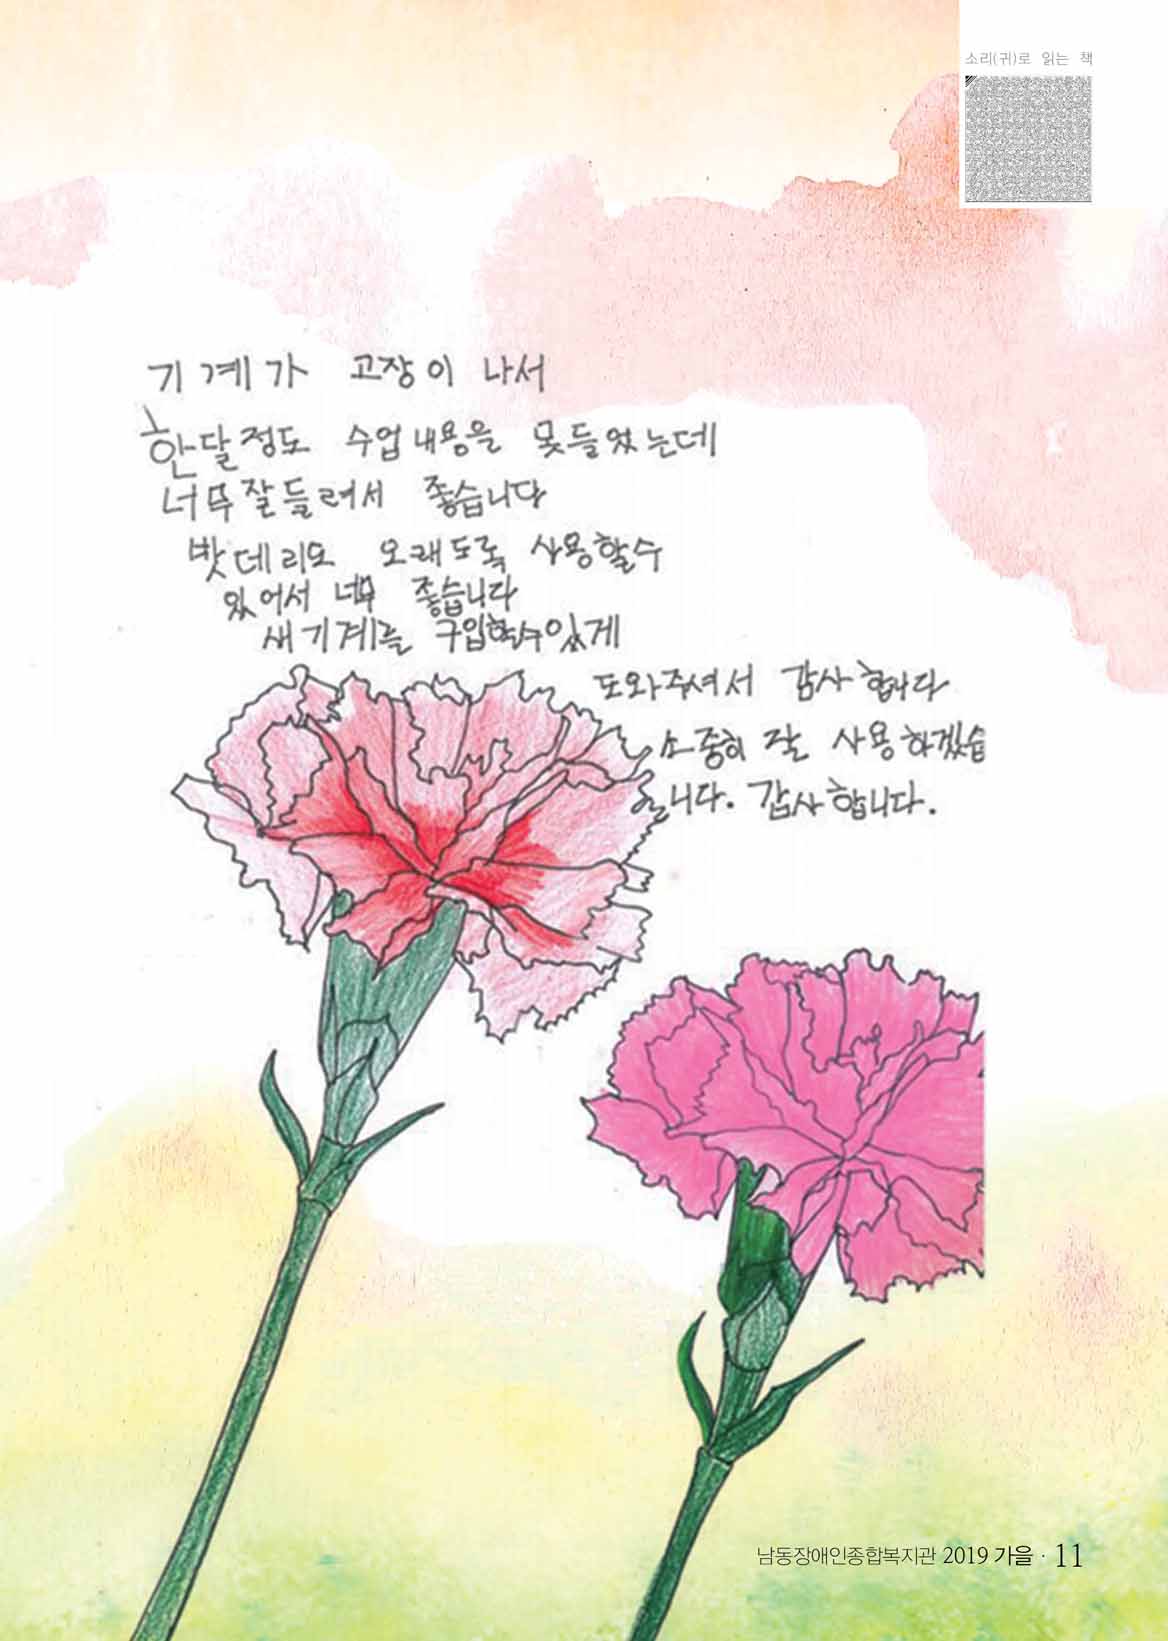 소리(귀)로 읽는 책
기계가 고장이 나서
한달정도 수업내용을 못들었는데
너무잘들려서 좋습니다
밧데리도 오래도록 사용할수
있어서 너무 좋습니다
새기계를 구입할수있게
도와주셔서 감사합니다
소중히 잘 사용하겠습
니다. 감사합니다.
남동장애인종합복지관 2019 가을 · 11